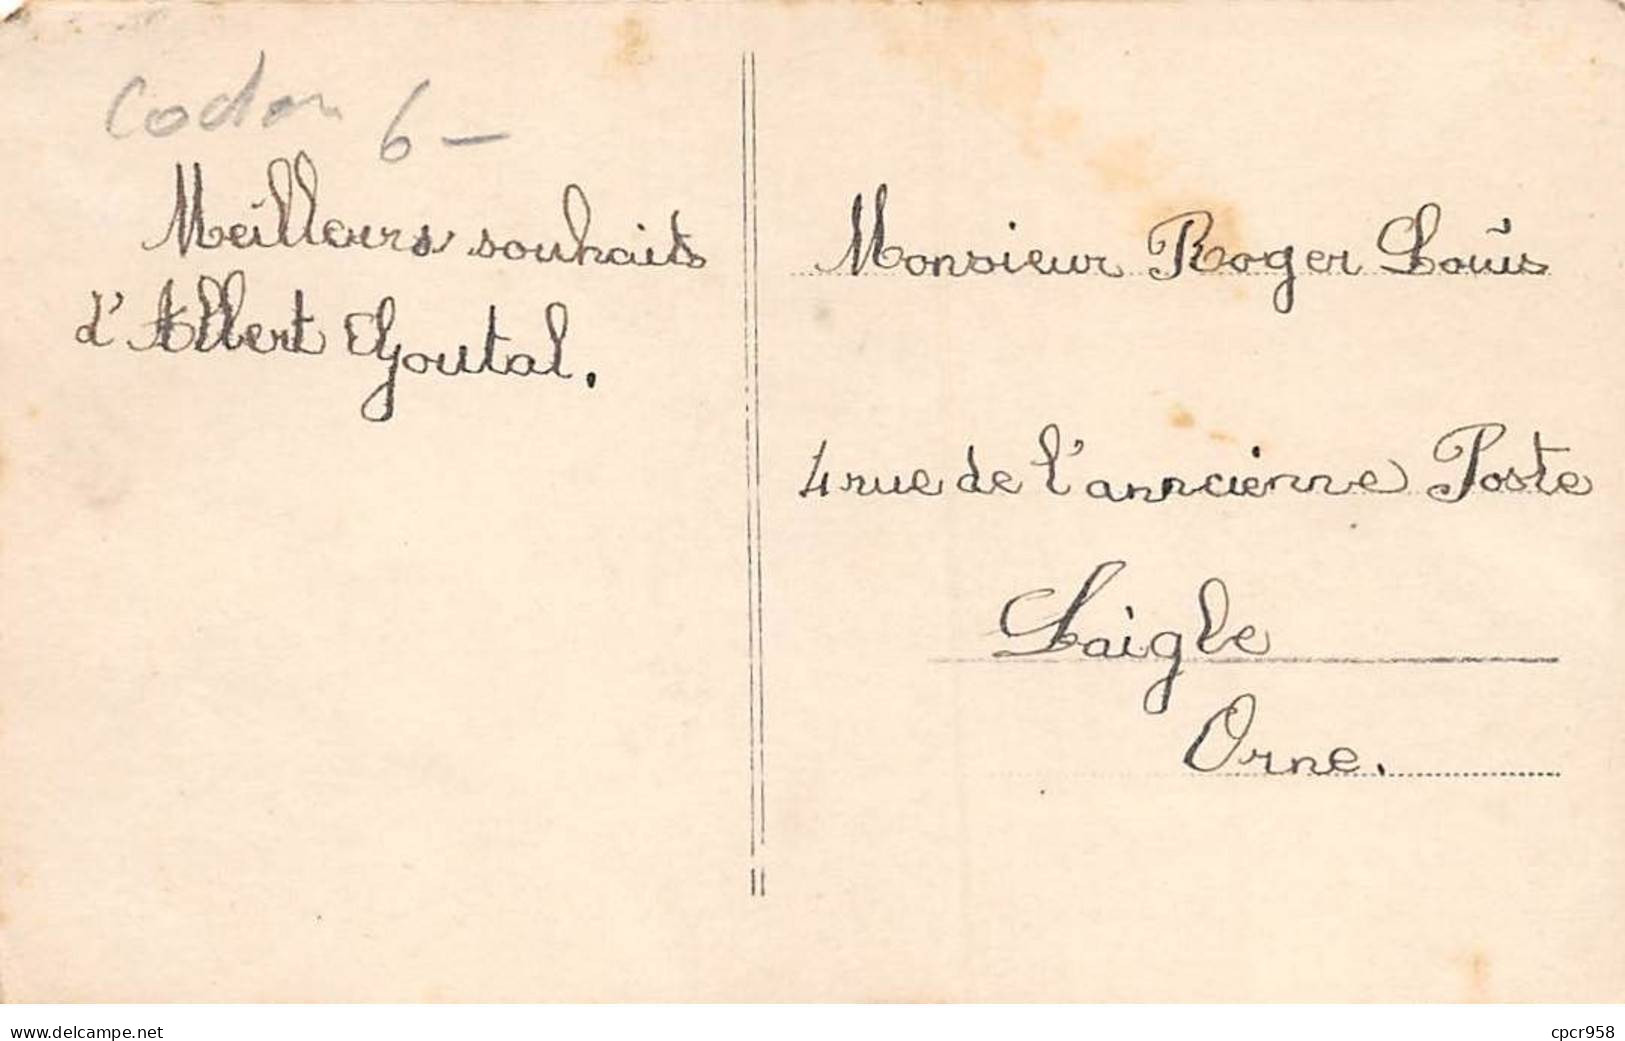 6 -
Meilleurs souhaits
d'Albert Goutal.
Monsieur Roger Louïs
4 rue de l'anncienne Poste
Laigle
Orne.
www.delcampe.net
cpcr958